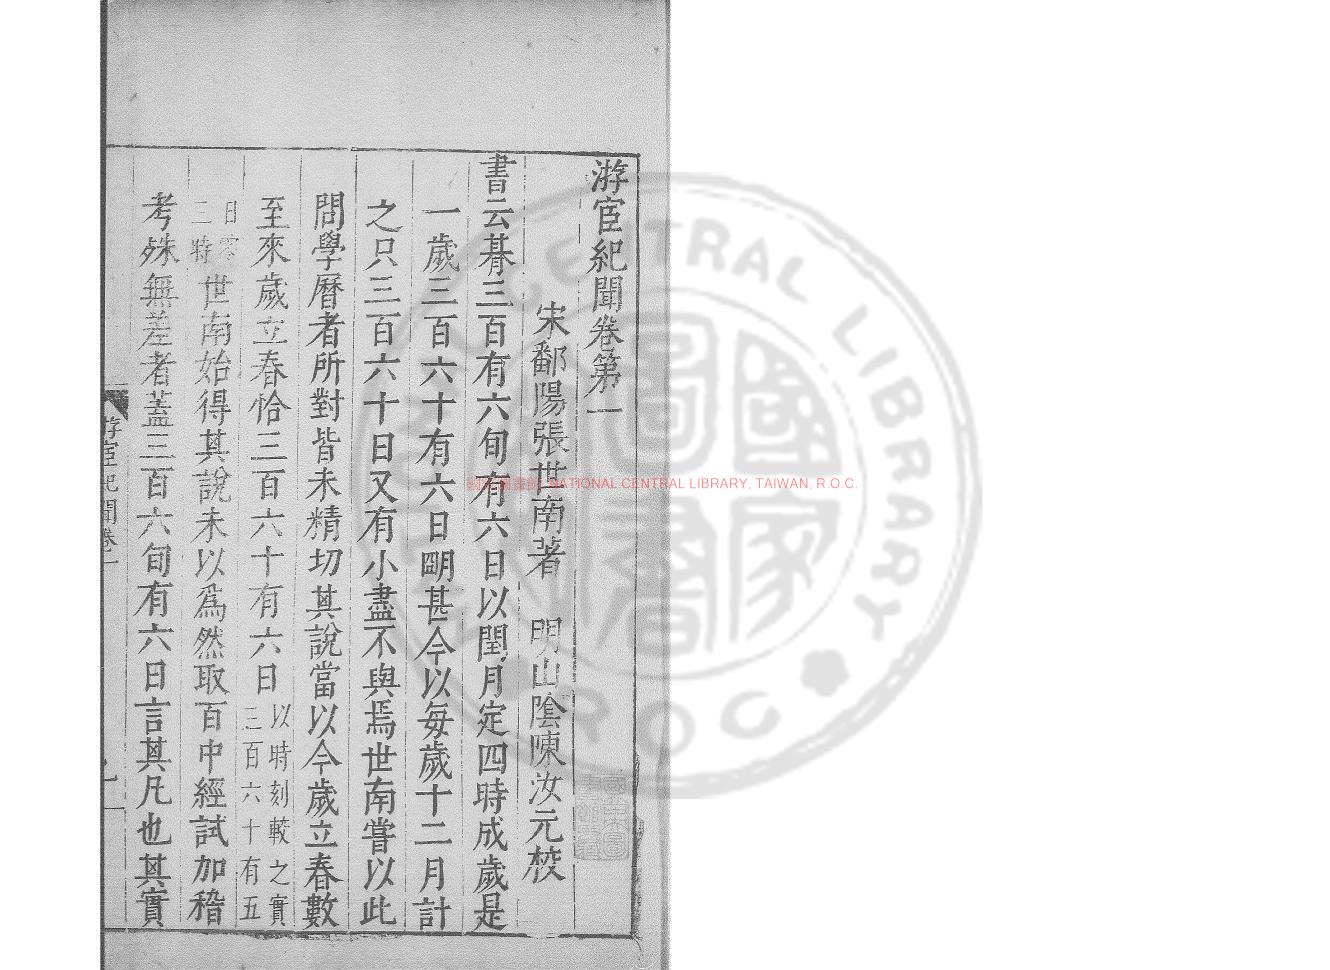 游宦紀聞卷第一
宋鄱陽張世南著　明山陰陳汝元校
書云朞三百有六旬有六日以閏月定四時成歲是
一歲三百六十有六日明甚今以每歲十二月計
之只三百六十日又有小盡不與焉世南嘗以此
問學曆者所對皆未精切其說當以今歲立春數
至來歲立春恰三百六十有六日以時刻較之實三百六十有五
日零三時世南始得其說未以爲然取百中經試加稽
考殊無差者蓋三百六旬有六日言其凡也其實
游宦紀聞卷一
NATIONAL CENTRAL LIBRARY, TAIWAN, R.O.C.
CENTRAL LIBRARY
ROC
國家圖書